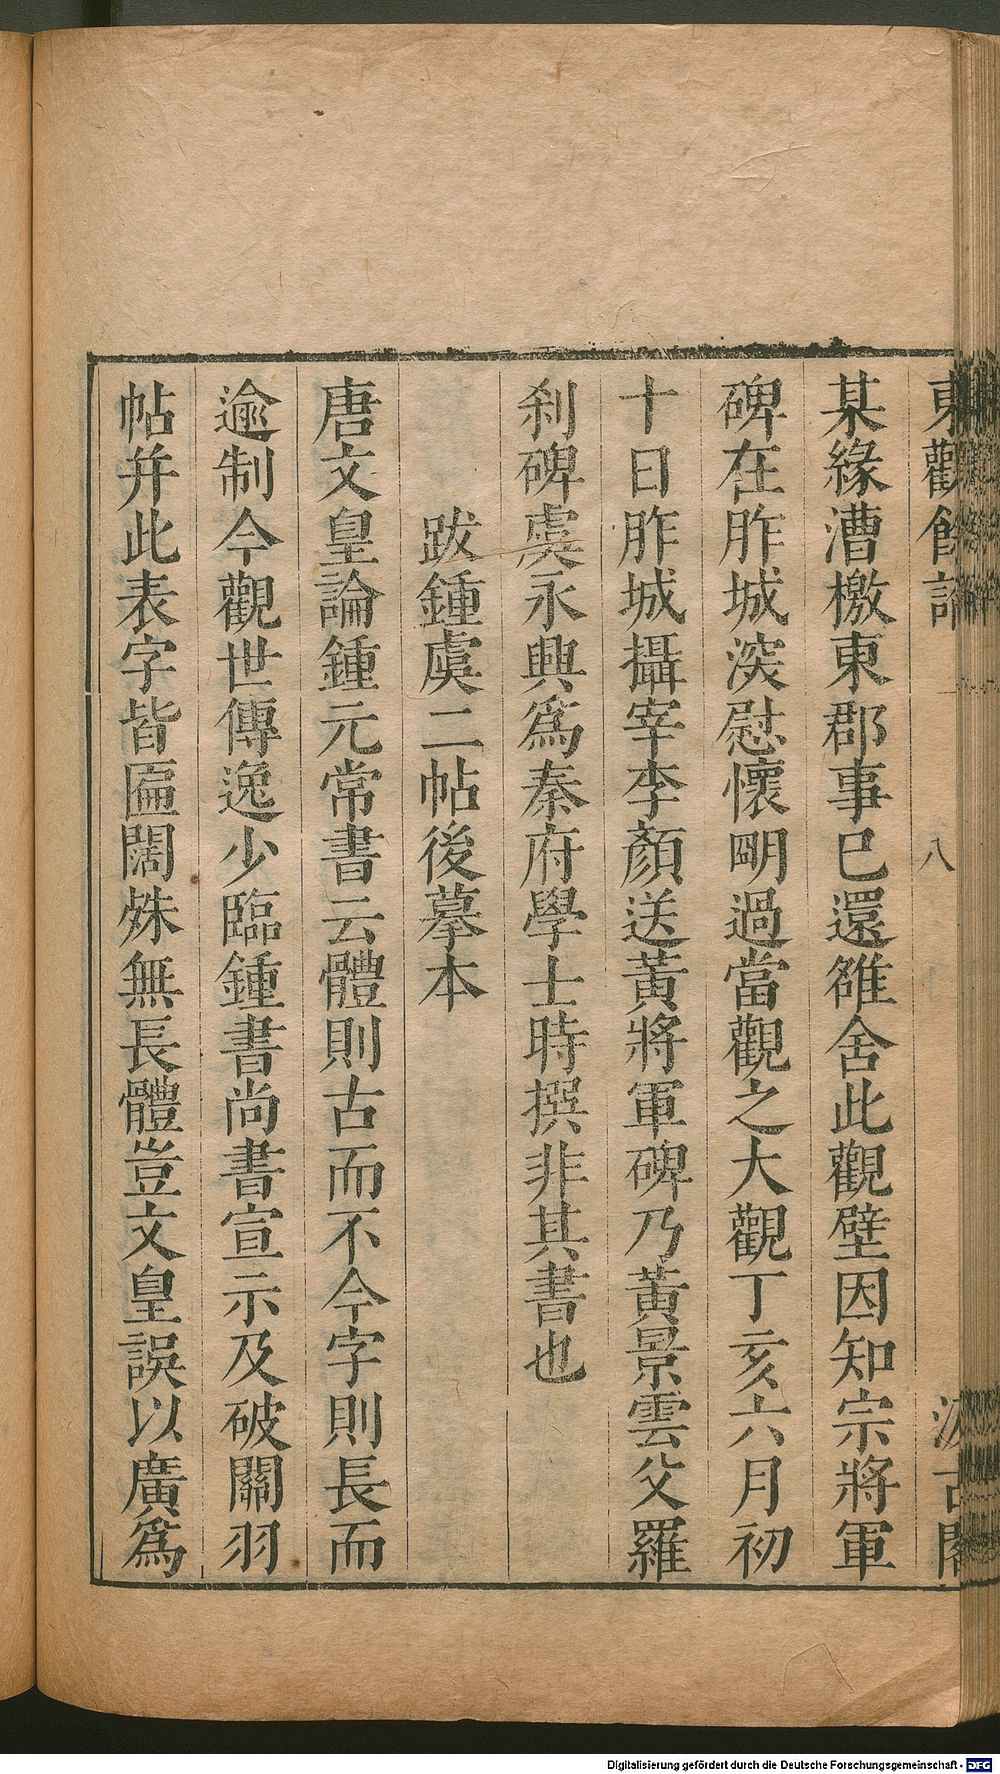 東觀餘論
八
汲古閣
某緣漕檄東郡事已還雒舍此觀壁因知宗將軍
碑在胙城㴱慰懷朙過當觀之大觀丁亥六月初
十日胙城攝宰李顏送黃將軍碑乃黃景雲父羅
刹碑虞永興爲秦府學士時撰非其書也
跋鍾虞二帖後摹本
唐文皇論鍾元常書云體則古而不今字則長而
逾制今觀世傳逸少臨鍾書尚書宣示及破關羽
帖幷此表字皆匾闊殊無長體豈文皇誤以廣爲
Digitalisierung gefördert durch die Deutsche Forschungsgemeinschaft - DFG